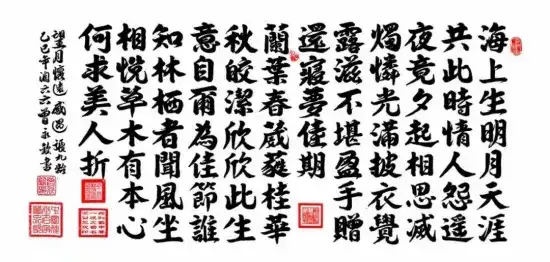 海上生明月天涯
共此時情人怨遥
夜竟夕起相思滅
燭憐光滿披衣覺
露滋不堪盈手贈
還寢夢佳期
蘭葉春葳蕤桂華
秋皎潔欣欣此生
意自爾為佳節誰
知林栖者聞風坐
相悅草木有本心
何求美人折
望月懷遠 感遇 張九齡
乙巳年闰六六曾永書